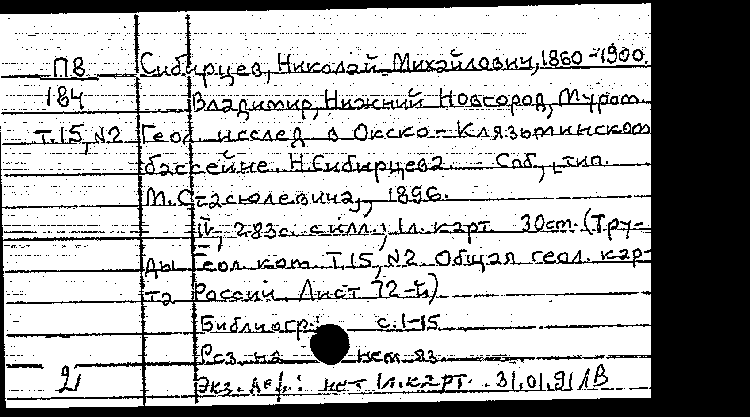 ПВ Сибирцев, Николай Михайлович, 1860-1900.
184 Владимир, Нижний Новгород, Муром.
Т.15, №2 Геол. исслед в Окско-Клязьминском
бассейне. Н.Сибирцева. - Спб., тип.
М.Стасюлевича, 1896.
IV, 283с. с илл.; 1л. карт 30см. (Тру-
ды Геол. ком. Т.15, №2. Общая геол. кар-
та России. Лист 72-й)
Библиогр.: с.1-15
Рез. на нем. яз.
2 Экз. деф.: нет 1л. карт. 31.01.91 ЛВ